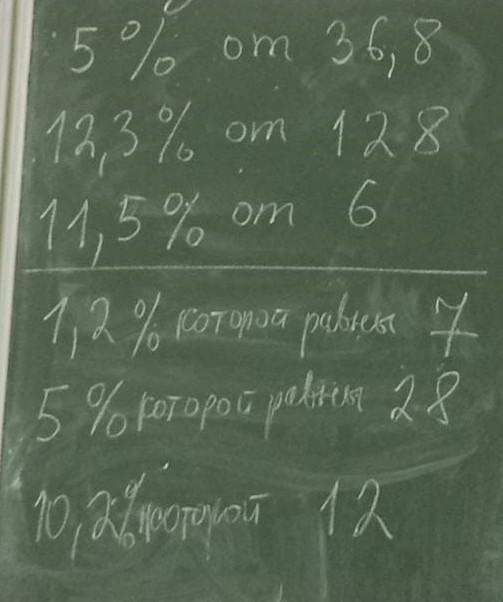 5% от 36,8
12,3% от 128
11,5% от 6
1,2% которой равны 7
5% которой равны 28
10,2% которой 12